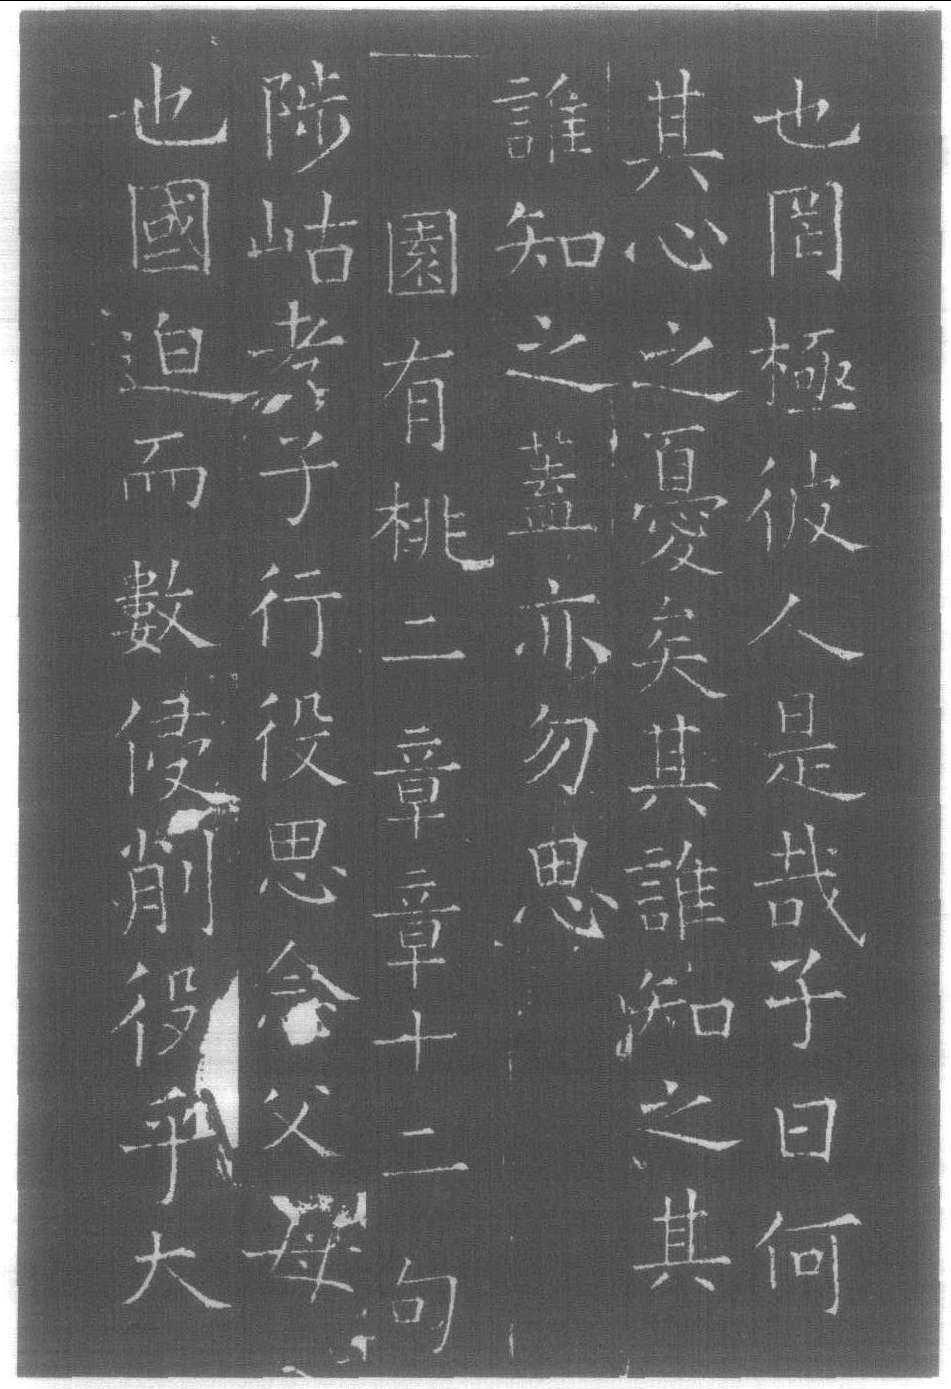 也罔極彼人是哉子曰何
其心之憂矣其誰知之其
誰知之蓋亦勿思
園有桃二章章十二句
陟岵孝子行役思念父母
也國迫而數侵削役乎大